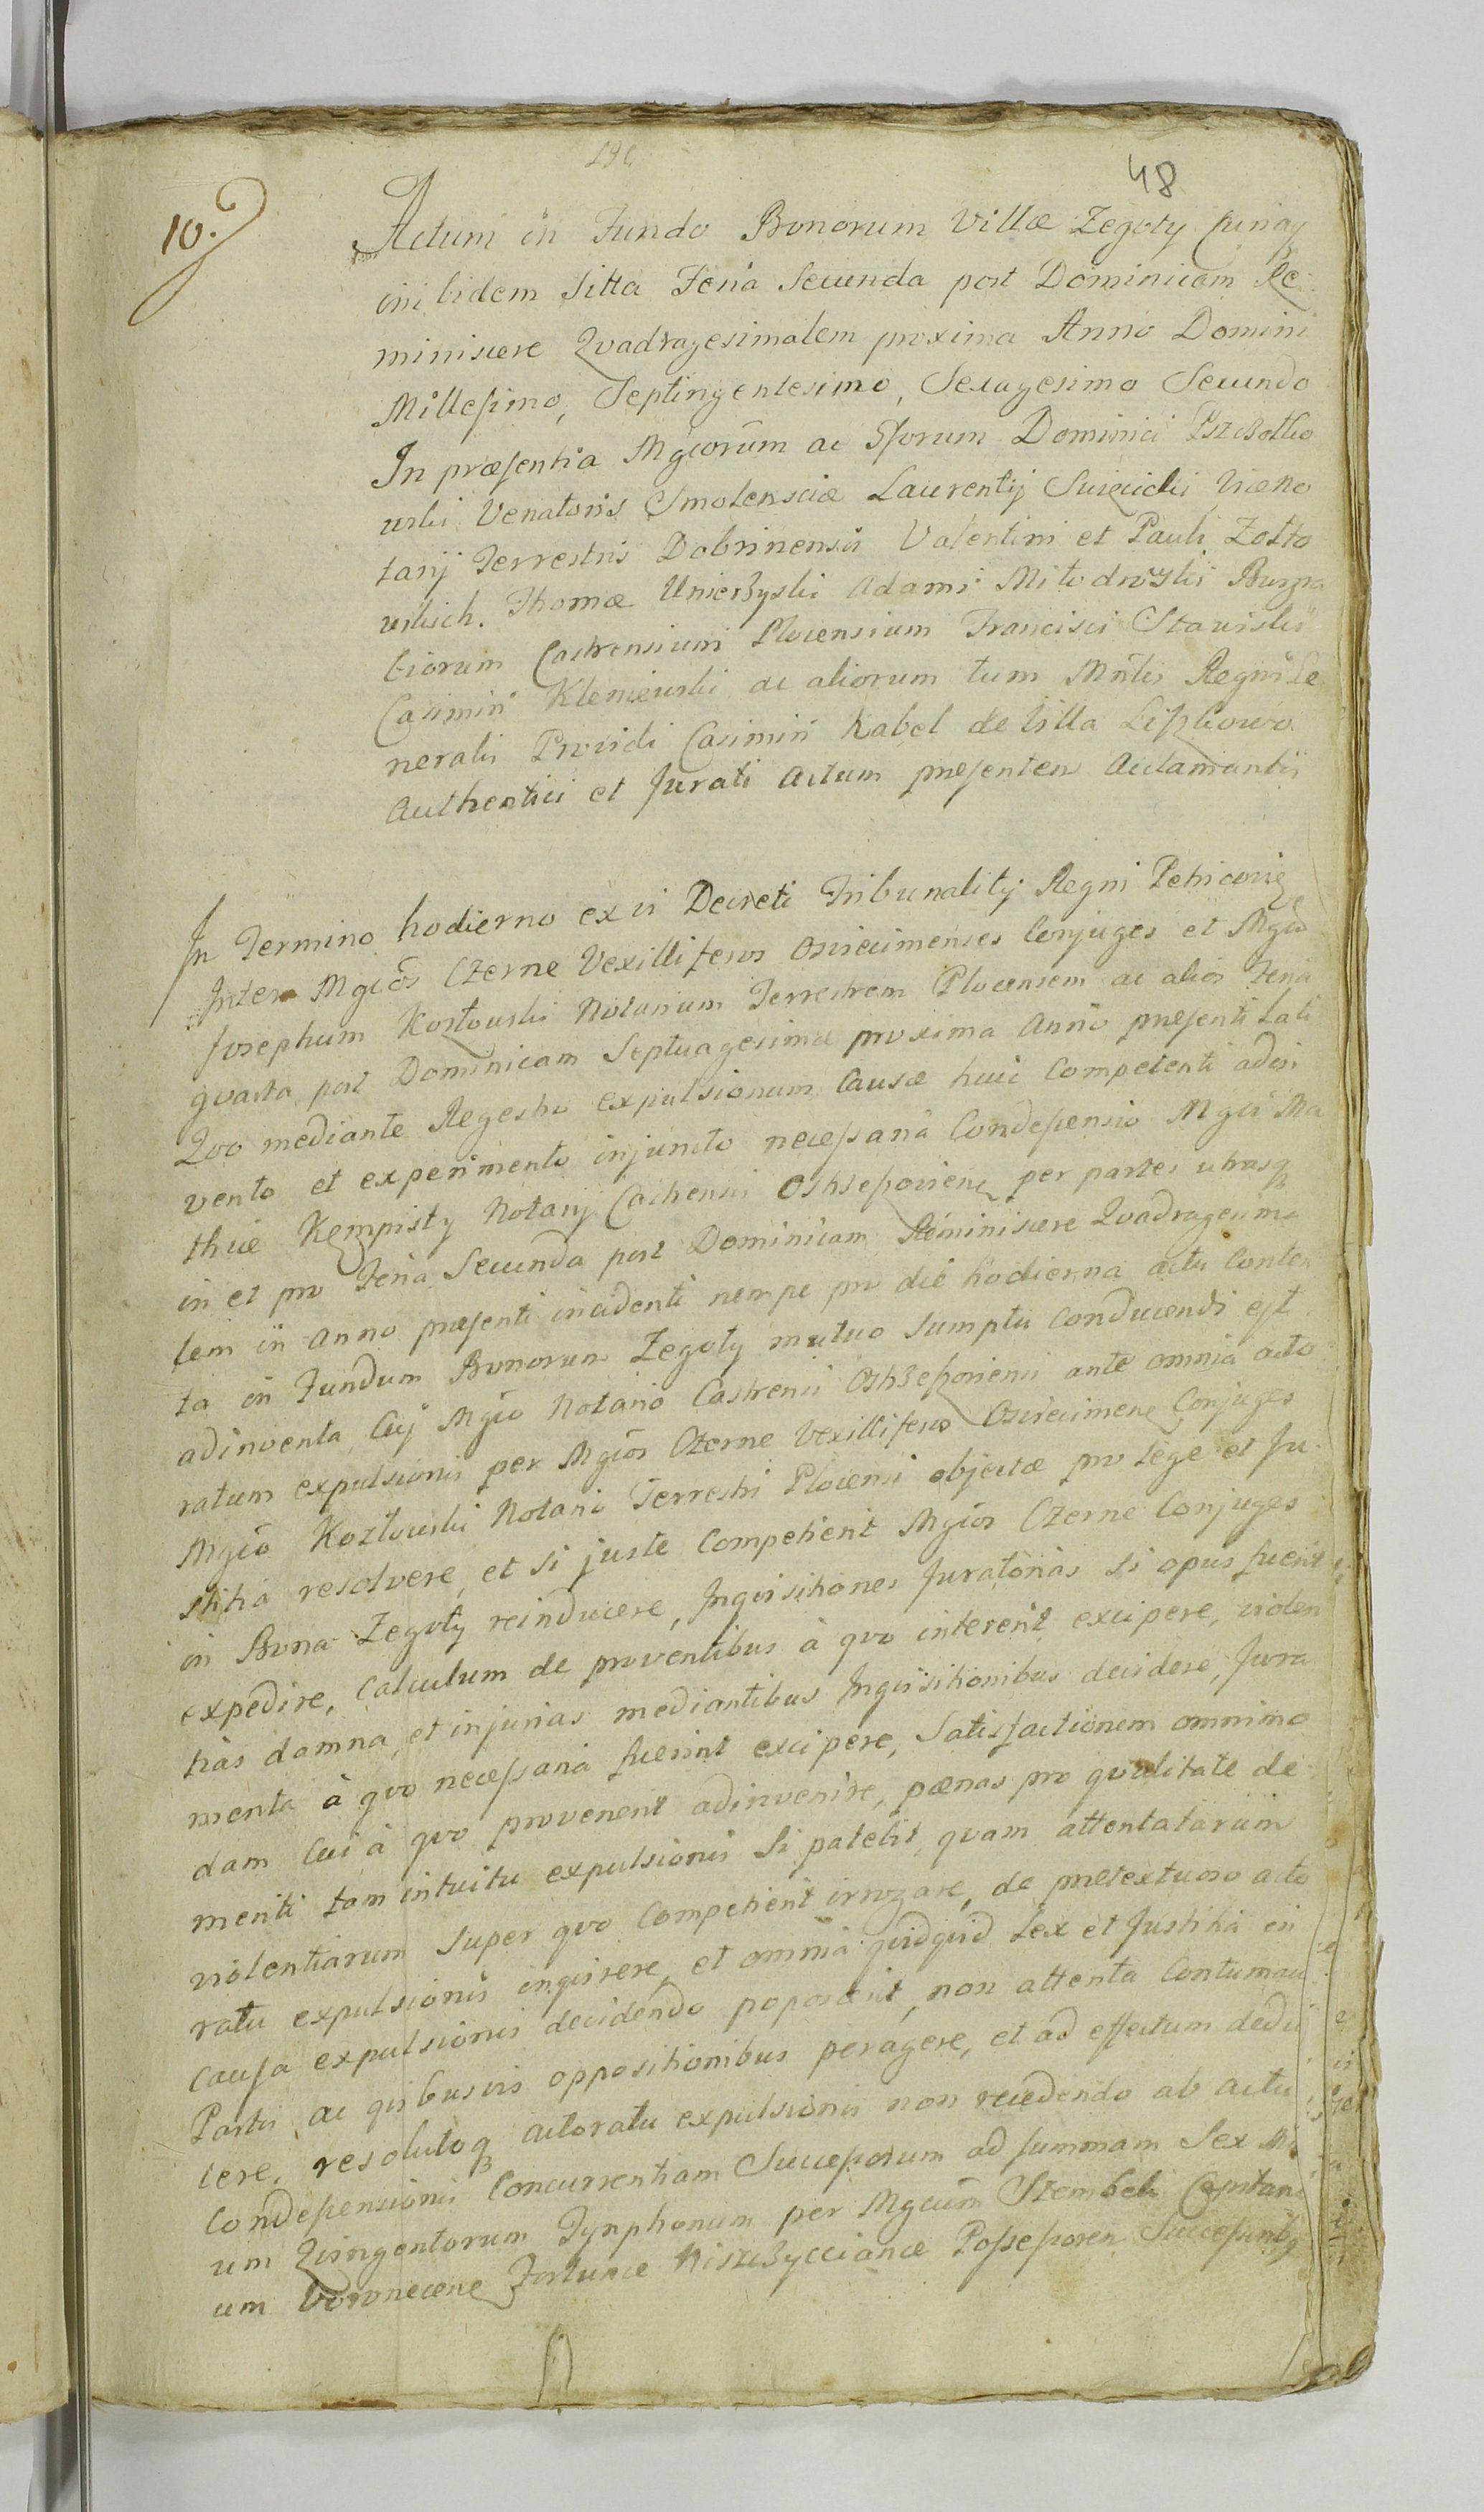 48
10.
Actum in Fundo Bonorum Villæ Zegoty
inibidem Sitta Feria Secunda post Dominicam Re-
miniscere Qvadragesimalem proxima Anno Domini
Millesimo, Septingentesimo, Sexagesimo Secundo
In præsentia Mgcorum ac Dominici
wski Venatoris Smolensciæ Laurentij Viceno
tarij Terrestris Dobrinensis Valentini et Pauli Zotto
wskich. Thomæ Unierzyski Adami Miłodrowski Burgra
biorum Castrensium Plocensium Francisci Stawiski
Casimiri Kleniewski ac aliorum tum Mntis Regni Ge
neralis Providi Casimiri Kabel de Villa
Authentici et Jurati Actum præsentem Acclamantis
In Termino hodierno ex vi Decreti Tribunalitij Regni Petricovien
Inter Mgcos Czerne Vexilliferos Osviecimenses Conjuges et Mgcu
Josephum Kozłowski Notarium Terrestrem Plocensem ac alios Feria
qvarta post Dominicam Septuagesimæ proxima Anno præsenti Lati
Qvo mediante Regestro expulsionum Causæ huic Competenti adin
vento et experimento injuncto necessaria Condescensio Mgci Ma
thiæ Kempisty Notarij Castrensis Ostrzessoviens per partes utrasq
in et pro Feria Secunda post Dominicam Reminiscere Qvadragesima
lem in Anno præsenti incidenti nempe pro die hodierna actu Conten
ta in Fundum Bonorum Zegoty mutuo Sumptu Conducendi est
adinventa Cuj Mgco Notario Castrensi Ostrzessoviensi ante omnia acto
ratum expulsionis per Mgcos Czerne Vexilliferos Osviecimens Conjuges
Mgco Kozłowski Notario Terrestri Plocensi objectæ pro Lege et Ju-
stitia resolvere, et si juste Competierit Mgcos Czerne Conjuges
in Bona Zegoty reinducere, Inqvisitiones Juratorias si opus fuerit
expedire, Calculum de proventibus à qvo intererit excipere, violen
tias damna, et injurias mediantibus Inqvisitionibus decidere, Jura
menta à qvo necessaria fuerint excipere, Satisfactionem omnimo
dam Cui à qvo provenerit adinvenire, pænas pro qvalitate de-
meriti tam intuitu expulsionis Si patebit, quam attentatarum
violentiarum Super qvo Competierit irrogare, de prætextuoso acto
ratu expulsionis inqvirere, et omnia qvidqvid Lex et Justitia in
Causa expulsionis decidendo poposcerit, non attenta Contumaci
Partis ac qvibusvis oppositionibus peragere, et ad effectum dedu
cere, resolutoq actoratu expulsionis non recedendo ab actu
Condescensionis Concurrentiam Successorum ad Summam Sex Mi
um Qvingentorum Tynphonum per Mgcum Szembek Capitane
um Fortunæ Possessorem